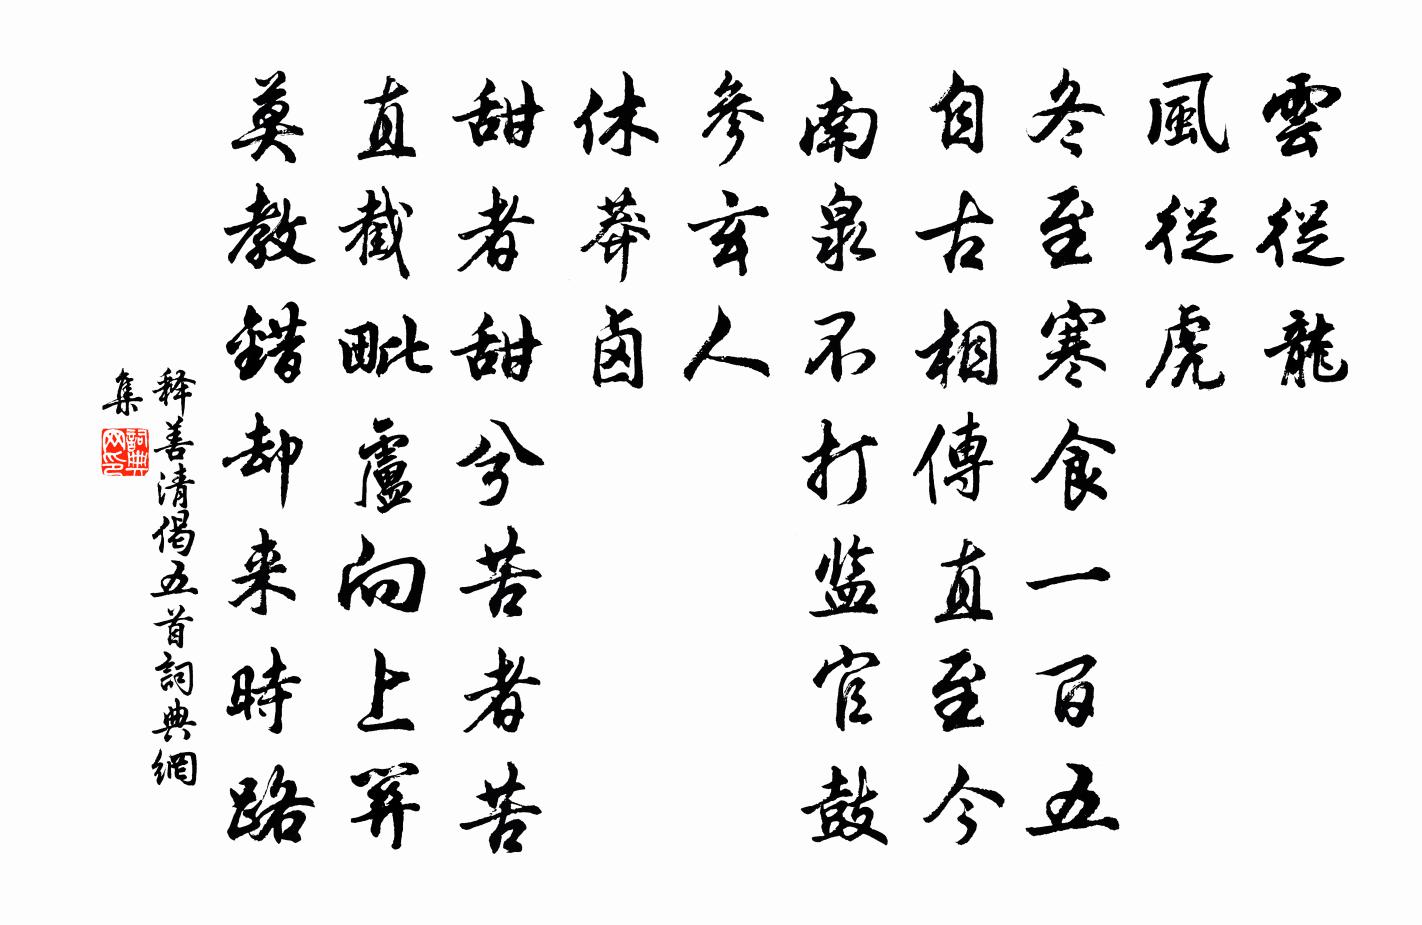 雲從龍
風從虎
冬至寒食一百五
自古相傳直至今
南泉不打监官鼓
參玄人
休莽卤
甜者甜兮苦者苦
直截毗盧向上關
莫教錯却来時路
释善清偈五首詞典網
集
詞典网印